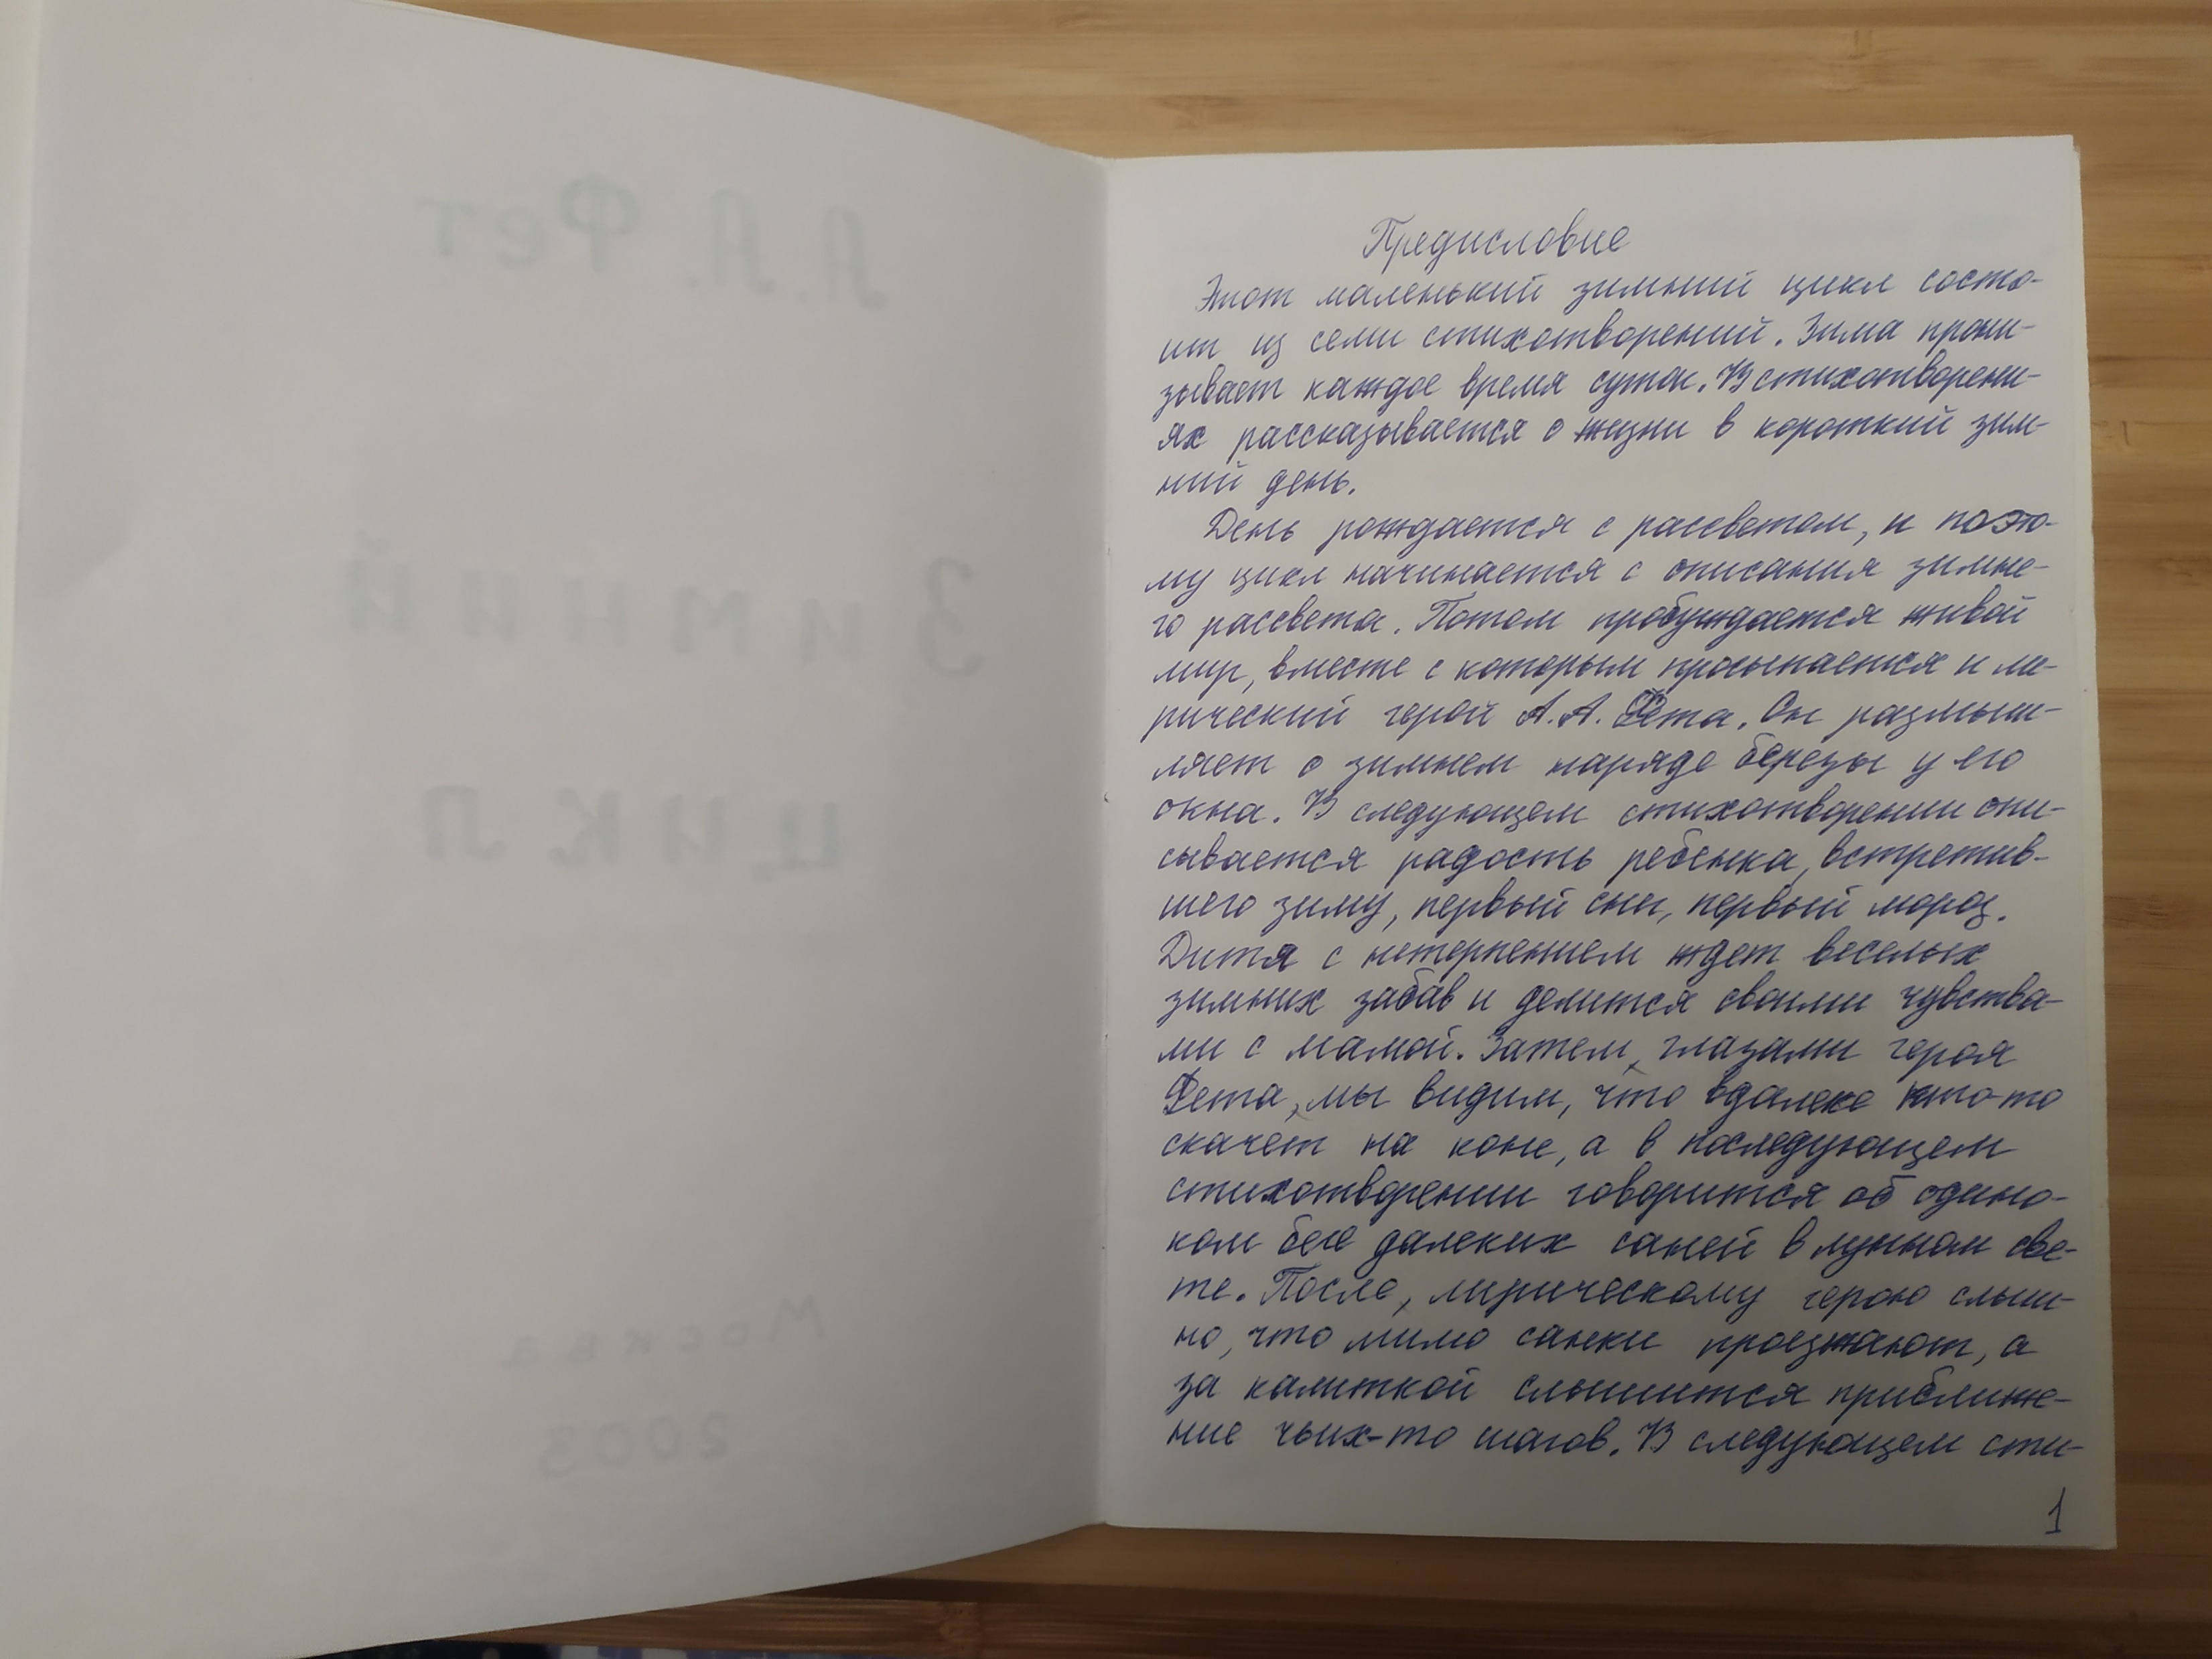 А. А. Фет
Зимний
цикл
Москва
2003
Предисловие
Этот маленький зимний цикл состо-
ит из семи стихотворений. Зима прони-
зывает каждое время суток. В стихотворени-
ях рассказывается о жизни в короткий зим-
ний день.
День рождается с рассветом, и поэто-
му цикл начинается с описания зимне-
го рассвета. Потом пробуждается живой
мир, вместе с которым просыпается и ли-
рический герой А.А. Фета. Он размыш-
ляет о зимнем наряде березы у его
окна. В следующем стихотворении опи-
сывается радость ребенка, встретив-
шего зиму, первый снег, первый мороз.
Дитя с нетерпением ждет веселых
зимних забав и делится своими чувства-
ми с мамой. Затем, глазами героя
Фета, мы видим, что вдалеке кто-то
скачет на коне, а в последующем
стихотворении говорится об одино-
ком беге далеких саней в лунном све-
те. После, лирическому герою слыш-
но, что мимо санки проезжают, а
за калиткой слышится приближе-
ние чьих-то шагов. В следующем сти-
1